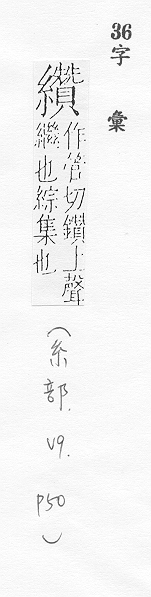 36
字彙
纘
作管切鑽上聲
繼也綜集也
(糸部. V9. P50)